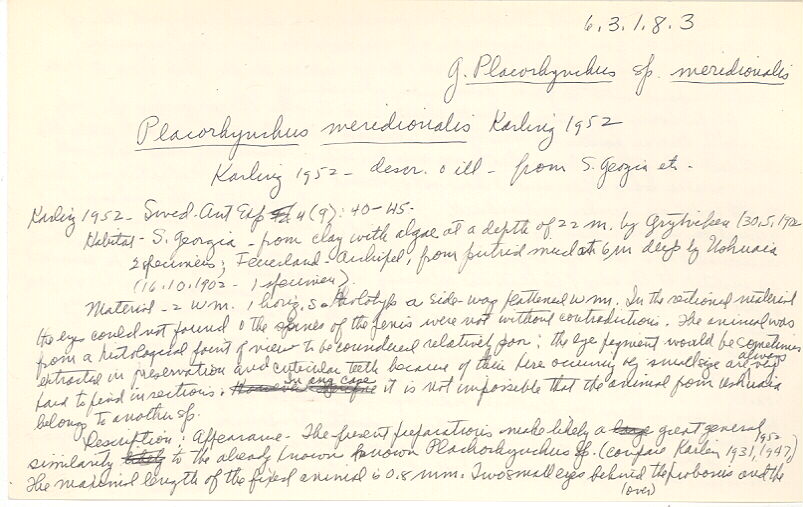 6.3.1.8.3
g. Placorhynchus sp. meridionalis
Placorhynchus meridionalis Karling 1952
Karling 1952 - descr. o ill - from S. Georgia etc.
Karling 1952 - Swed. Ant Exp 4(9): 40-45.
Habitat - S. Georgia - from clay with algae at a depth of 22 m. by Grytviken (30.5.1902
2 specimens; Feuerland-Archipel, from putrid mud at 6 m deep by Ushuaia
(16.10.1902 - 1 specimen).
Material - 2 w m. 1 horiz. s. Holotype a side-way flattened w m. In the sectioned material
the eyes could not found o the spines of the penis were not without contradictions. The animal was
from a histological point of view to be considered relatively poor; the eye pigment would be sometimes
extracted in preservation and cuticular teeth because of their here occurring of small size are always
hard to find in sections. In any case it is not impossible that the animal from Ushuaia
belong to another sp.
Description: Appearance - The present preparations make likely a great general
similarity to the already known known Placorhynchus sp. (compare Karling 1931, 1947, 1952)
The maximal length of the fixed animal is 0.8 mm. Two small eyes behind the proboscis and the
(over)